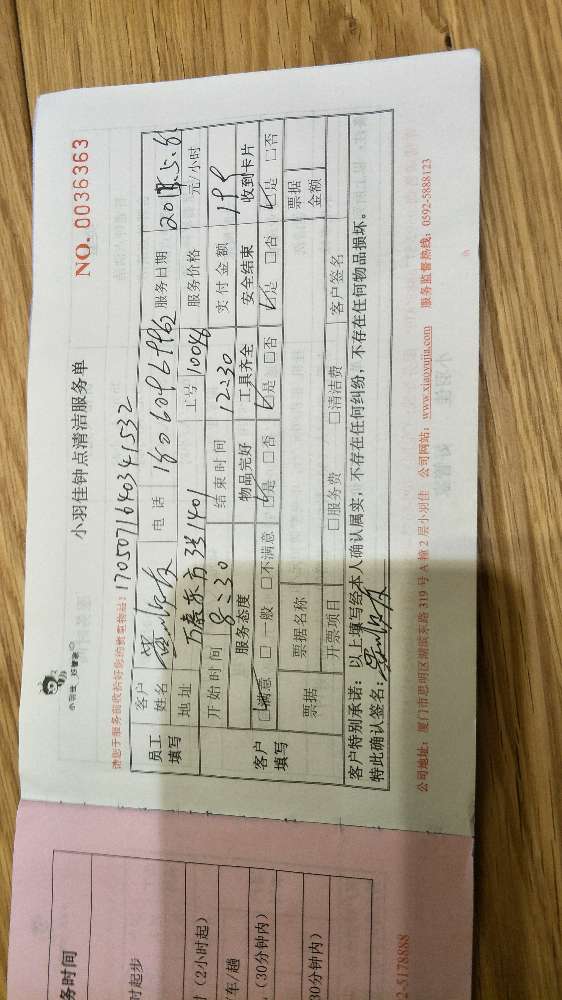 小羽佳 好管家
小羽佳钟点清洁服务单
NO. 0036363
请您于服务前收拾好您的贵重物品:
1705071640341532
员工填写
客户姓名
电话
服务日期
地址
3#1401
工号 10046
服务价格 元/小时
开始时间 8:30
结束时间 12:30
实付金额 199
客户填写
服务态度 物品完好 工具齐全 安全结束 收到卡片
☑满意 □一般 □不满意 ☑是 □否 ☑是 □否 ☑是 □否 ☑是 □否
票据
票据名称
票据金额
开票项目 □服务费 □清洁费
客户签名
客户特别承诺: 以上填写经本人确认属实,不存在任何纠纷,不存在任何物品损坏。
特此确认签名:
公司地址: 厦门市思明区湖滨东路 319 号 A 幢 2 层小羽佳 公司网站: www.xiaoyujia.com 服务监督热线: 0592-5888123
务时间
时起步
(2小时起)
车/趟
(30分钟内)
30分钟内)
2-5178888